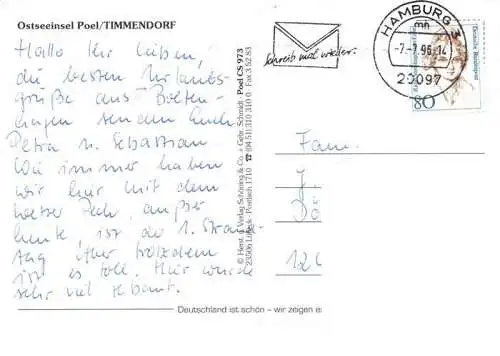 Ostseeinsel Poel/TIMMENDORF
Hallo Ihr Lieben,
die besten Urlaubs-
grüße aus Bolten-
hagen senden Euch
Petra u. Sebastian.
Wie immer haben
wir hier mit dem
Wetter Pech, außer
heute, ist der 1. Strand-
tag. Aber trotzdem
ist es toll. Hier wurde
sehr viel gebaut.
© Herst. u. Verlag Schöning & Co. + Gebr. Schmidt · Poel CS 973
23506 Lübeck · Postfach 1710 · ☎ (04 51) 310 310 0 · Fax 3 52 83
Schreib mal wieder.
HAMBURG
mn
-7.-7.96-14
20097
Deutsche Bundespost
80
Fam.
J.
Dö
126
Deutschland ist schön – wir zeigen es